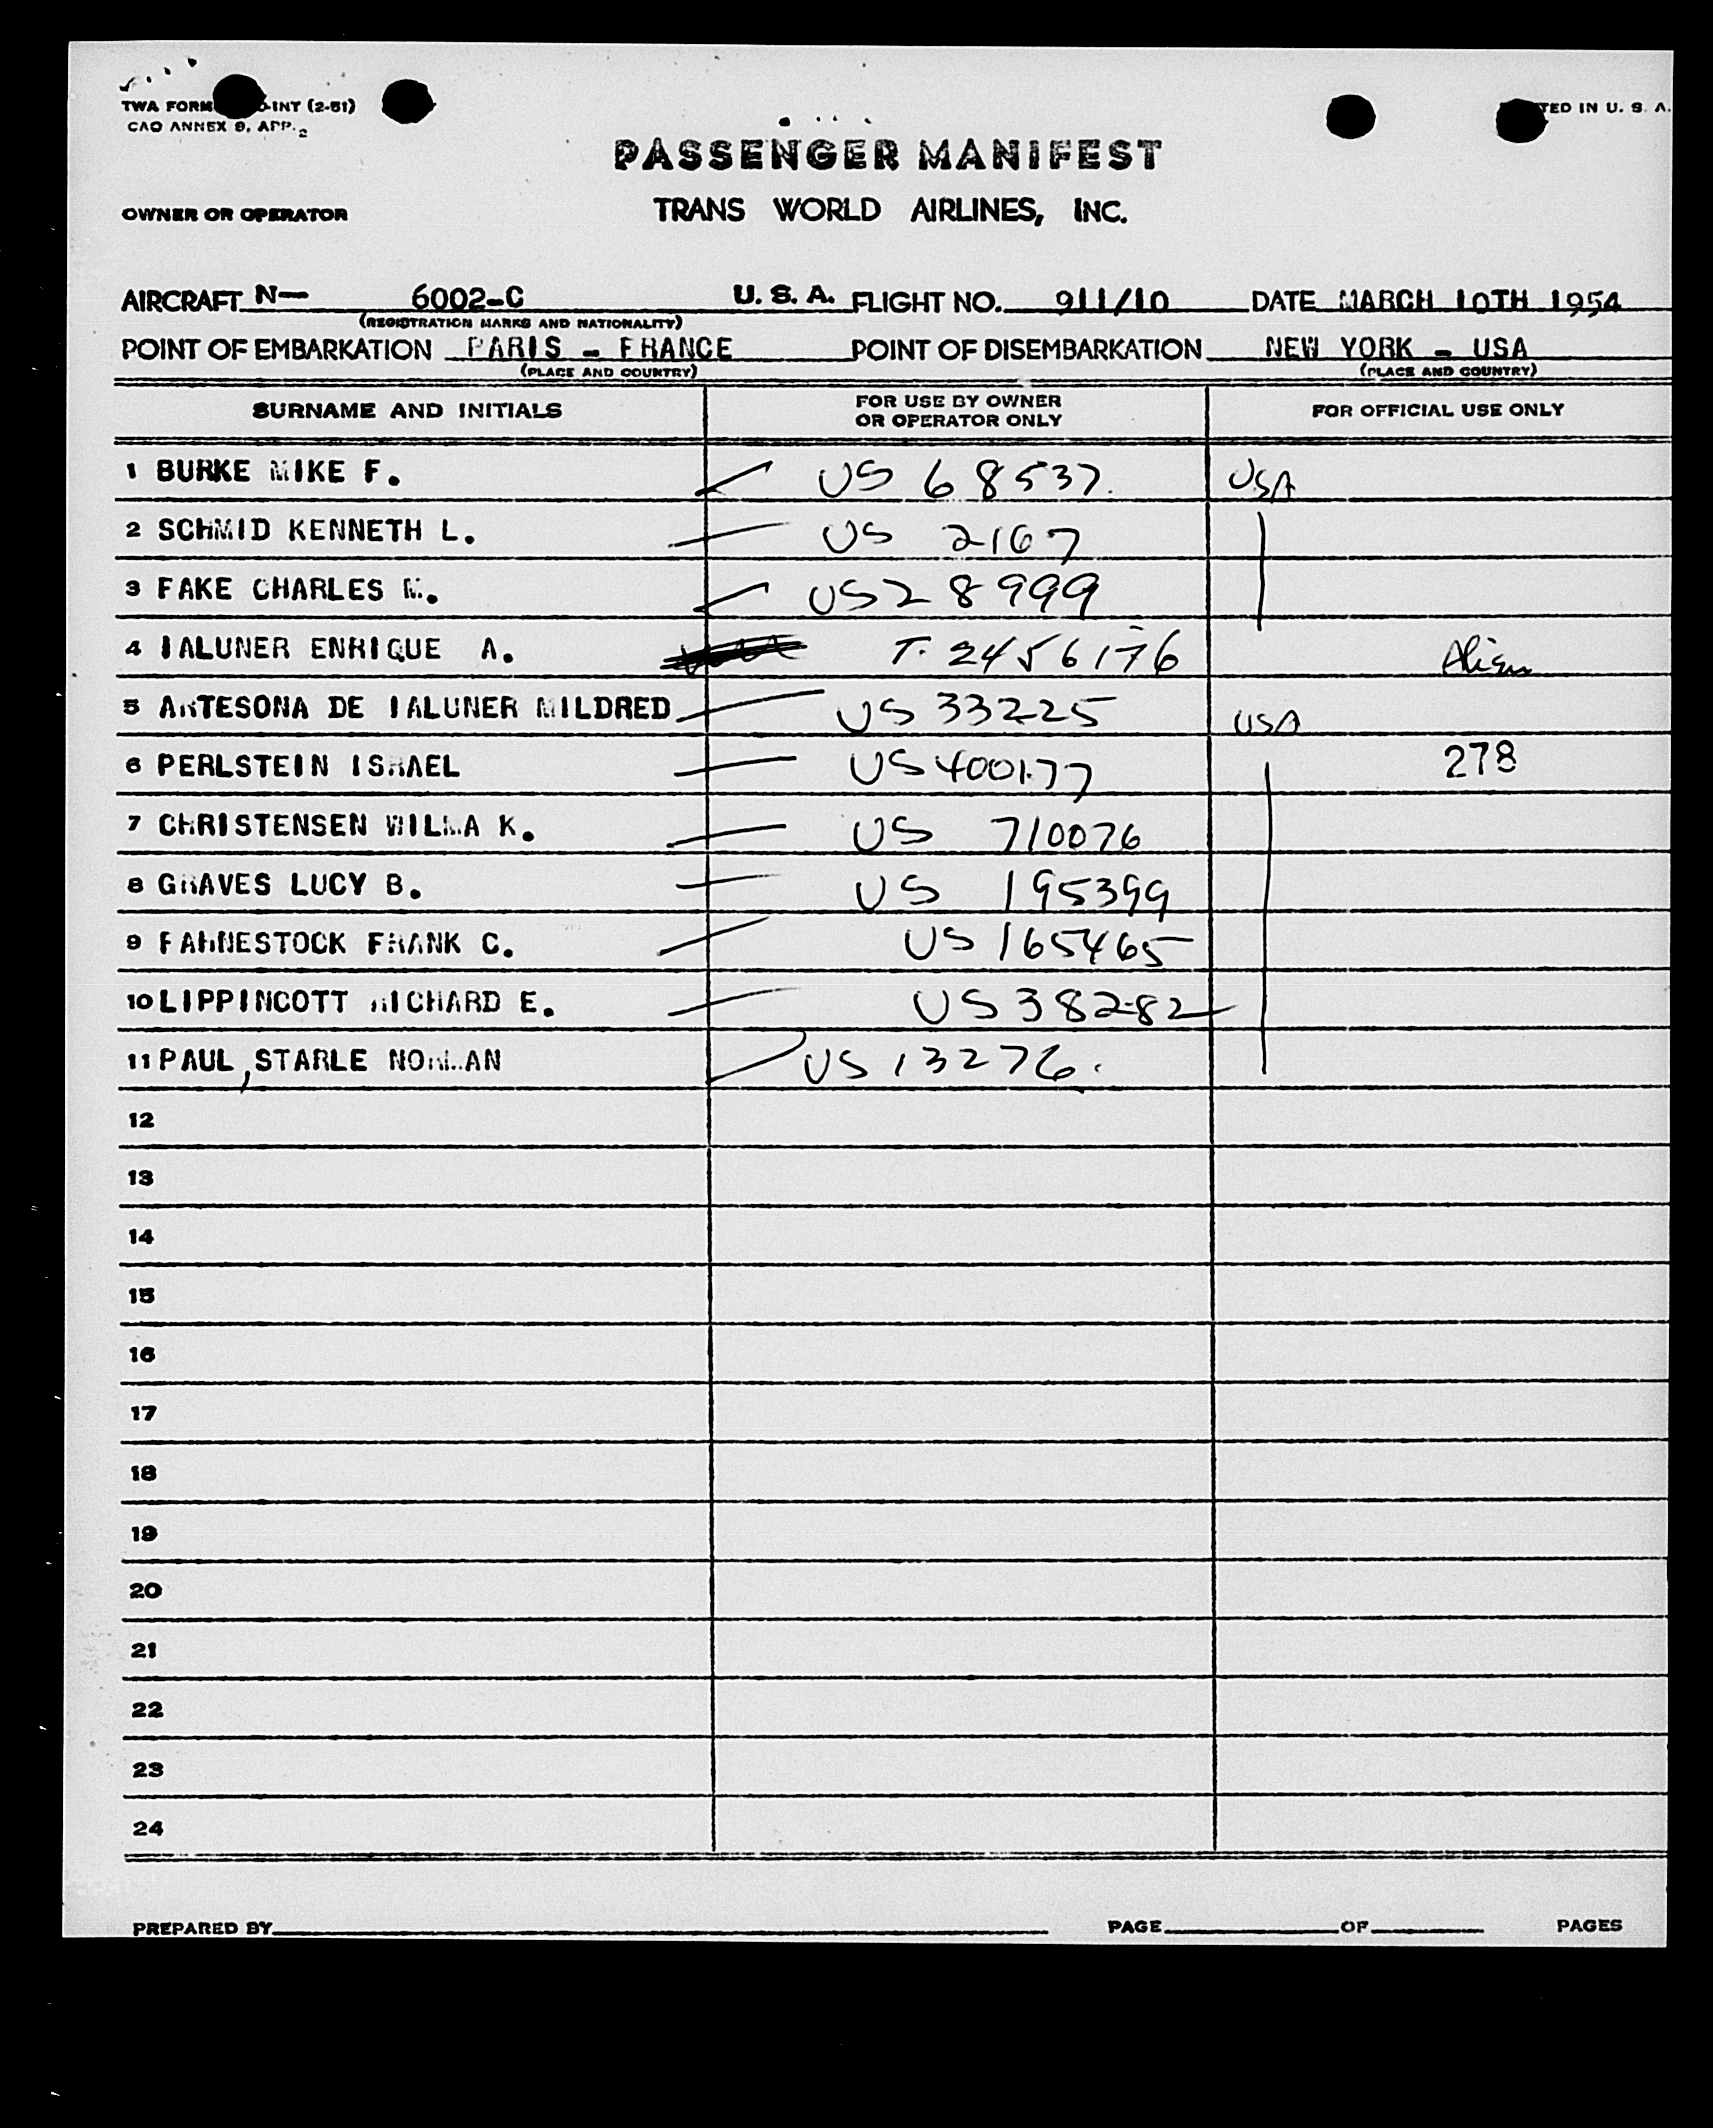 TWA FORM -INT (2-51) TED IN U. S. A.
CAO ANNEX 9, APP. 2
PASSENGER MANIFEST
OWNER OR OPERATOR TRANS WORLD AIRLINES, INC.
AIRCRAFT N— 6002-C U. S. A. FLIGHT NO. 911/10 DATE MARCH 10TH 1954
(REGISTRATION MARKS AND NATIONALITY)
POINT OF EMBARKATION PARIS - FRANCE POINT OF DISEMBARKATION NEW YORK - USA
(PLACE AND COUNTRY) (PLACE AND COUNTRY)
SURNAME AND INITIALS FOR USE BY OWNER OR OPERATOR ONLY FOR OFFICIAL USE ONLY
1 BURKE MIKE F. US 68537. USA
2 SCHMID KENNETH L. US 2167
3 FAKE CHARLES M. US 28999
4 IALUNER ENRIQUE A. T. 2456176 Alien
5 ARTESONA DE IALUNER MILDRED US 33225 USA
6 PERLSTEIN ISRAEL US 400177 278
7 CHRISTENSEN WILMA K. US 710076
8 GRAVES LUCY B. US 195399
9 FAHNESTOCK FRANK C. US 165465
10 LIPPINCOTT RICHARD E. US 38282
11 PAUL, STARLE NORMAN US 13276.
12
13
14
15
16
17
18
19
20
21
22
23
24
PREPARED BY PAGE OF PAGES